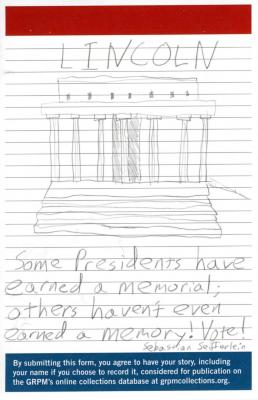 LINCOLN
Some Presidents have
earned a memorial;
others haven't even
earned a memory! Vote!
Sebastian Seiferlein
By submitting this form, you agree to have your story, including
your name if you choose to record it, considered for publication on
the GRPM's online collections database at grpmcollections.org.